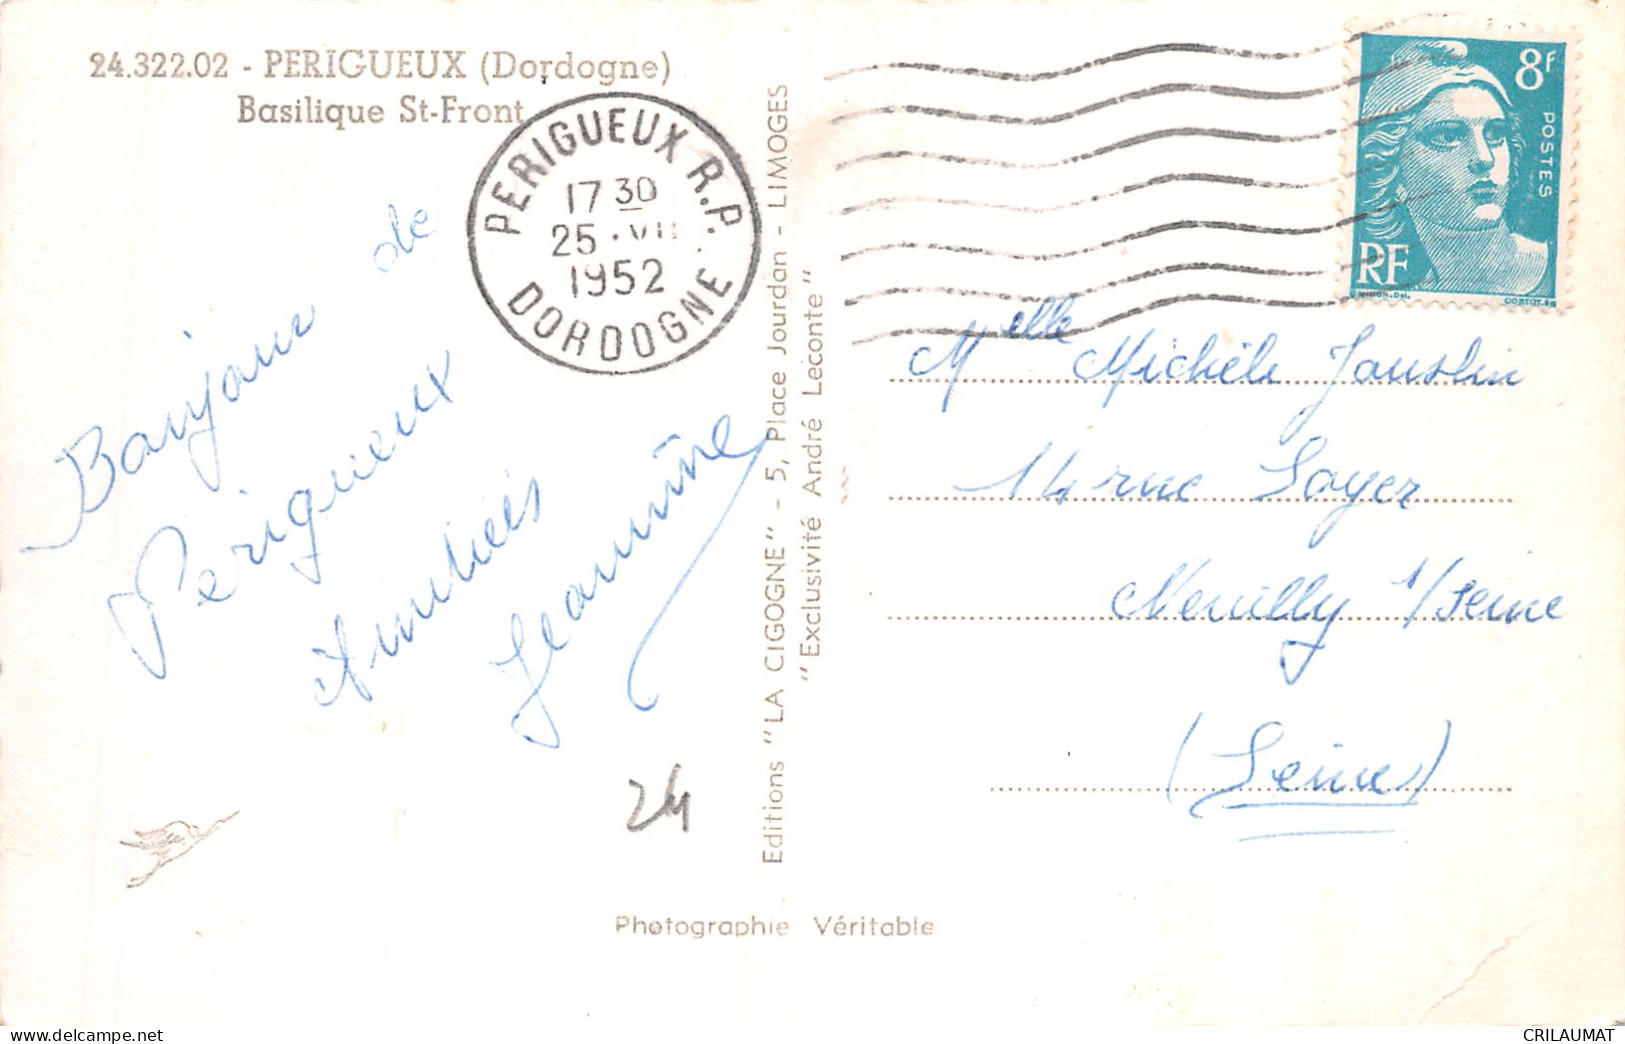 24.322.02 - PERIGUEUX (Dordogne)
Basilique St-Front
PERIGUEUX R.P.
17 30
25 · VII
1952
DORDOGNE
8F
POSTES
RF
CORTOT.
Bonjour de
Périgueux
Amitiés
Jeannine
24
Editions "LA CIGOGNE" - 5, Place Jourdan - LIMOGES
"Exclusivité André Leconte"
Melle Michèle
14 rue Soyer
Neuilly s/Seine
(Seine)
Photographie Véritable
CRILAUMAT